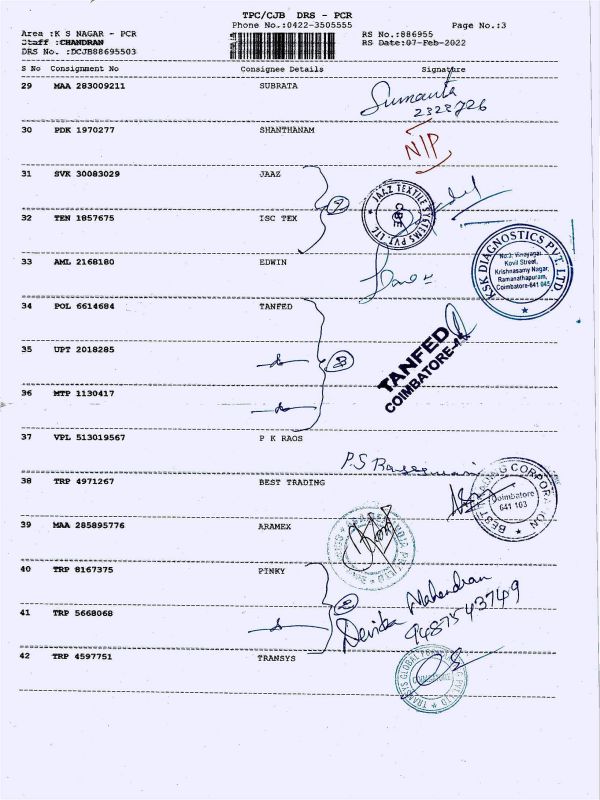 TPC/CJB DRS - PCR
Phone No.:0422-3505555
Page No.:3
Area :K S NAGAR - PCR
Staff :CHANDRAN
DRS No. :DCJB88695503
RS No.:886955
RS Date:07-Feb-2022
S No Consignment No Consignee Details Signature
29 MAA 283009211 SUBRATA
Sumanta
2328726
30 PDK 1970277 SHANTHANAM
N/P
31 SVK 30083029 JAAZ
JAAZ TEXTILE SYSTEMS PVT. LTD.
CBE
32 TEN 1857675 ISC TEX
KSK DIAGNOSTICS PVT. LTD
No:3, Vinayagar
Kovil Street,
Krishnasamy Nagar,
Ramanathapuram,
Coimbatore-641 045.
33 AML 2168180 EDWIN
34 POL 6614684 TANFED
TANFED
COIMBATORE-
35 UPT 2018285
36 MTP 1130417
37 VPL 513019567 P K RAOS
P.S
38 TRP 4971267 BEST TRADING
BEST TRADING CORPORATION
Coimbatore
641 103
39 MAA 285895776 ARAMEX
40 TRP 8167375 PINKY
Devika Mahendran
9487543749
41 TRP 5668068
42 TRP 4597751 TRANSYS